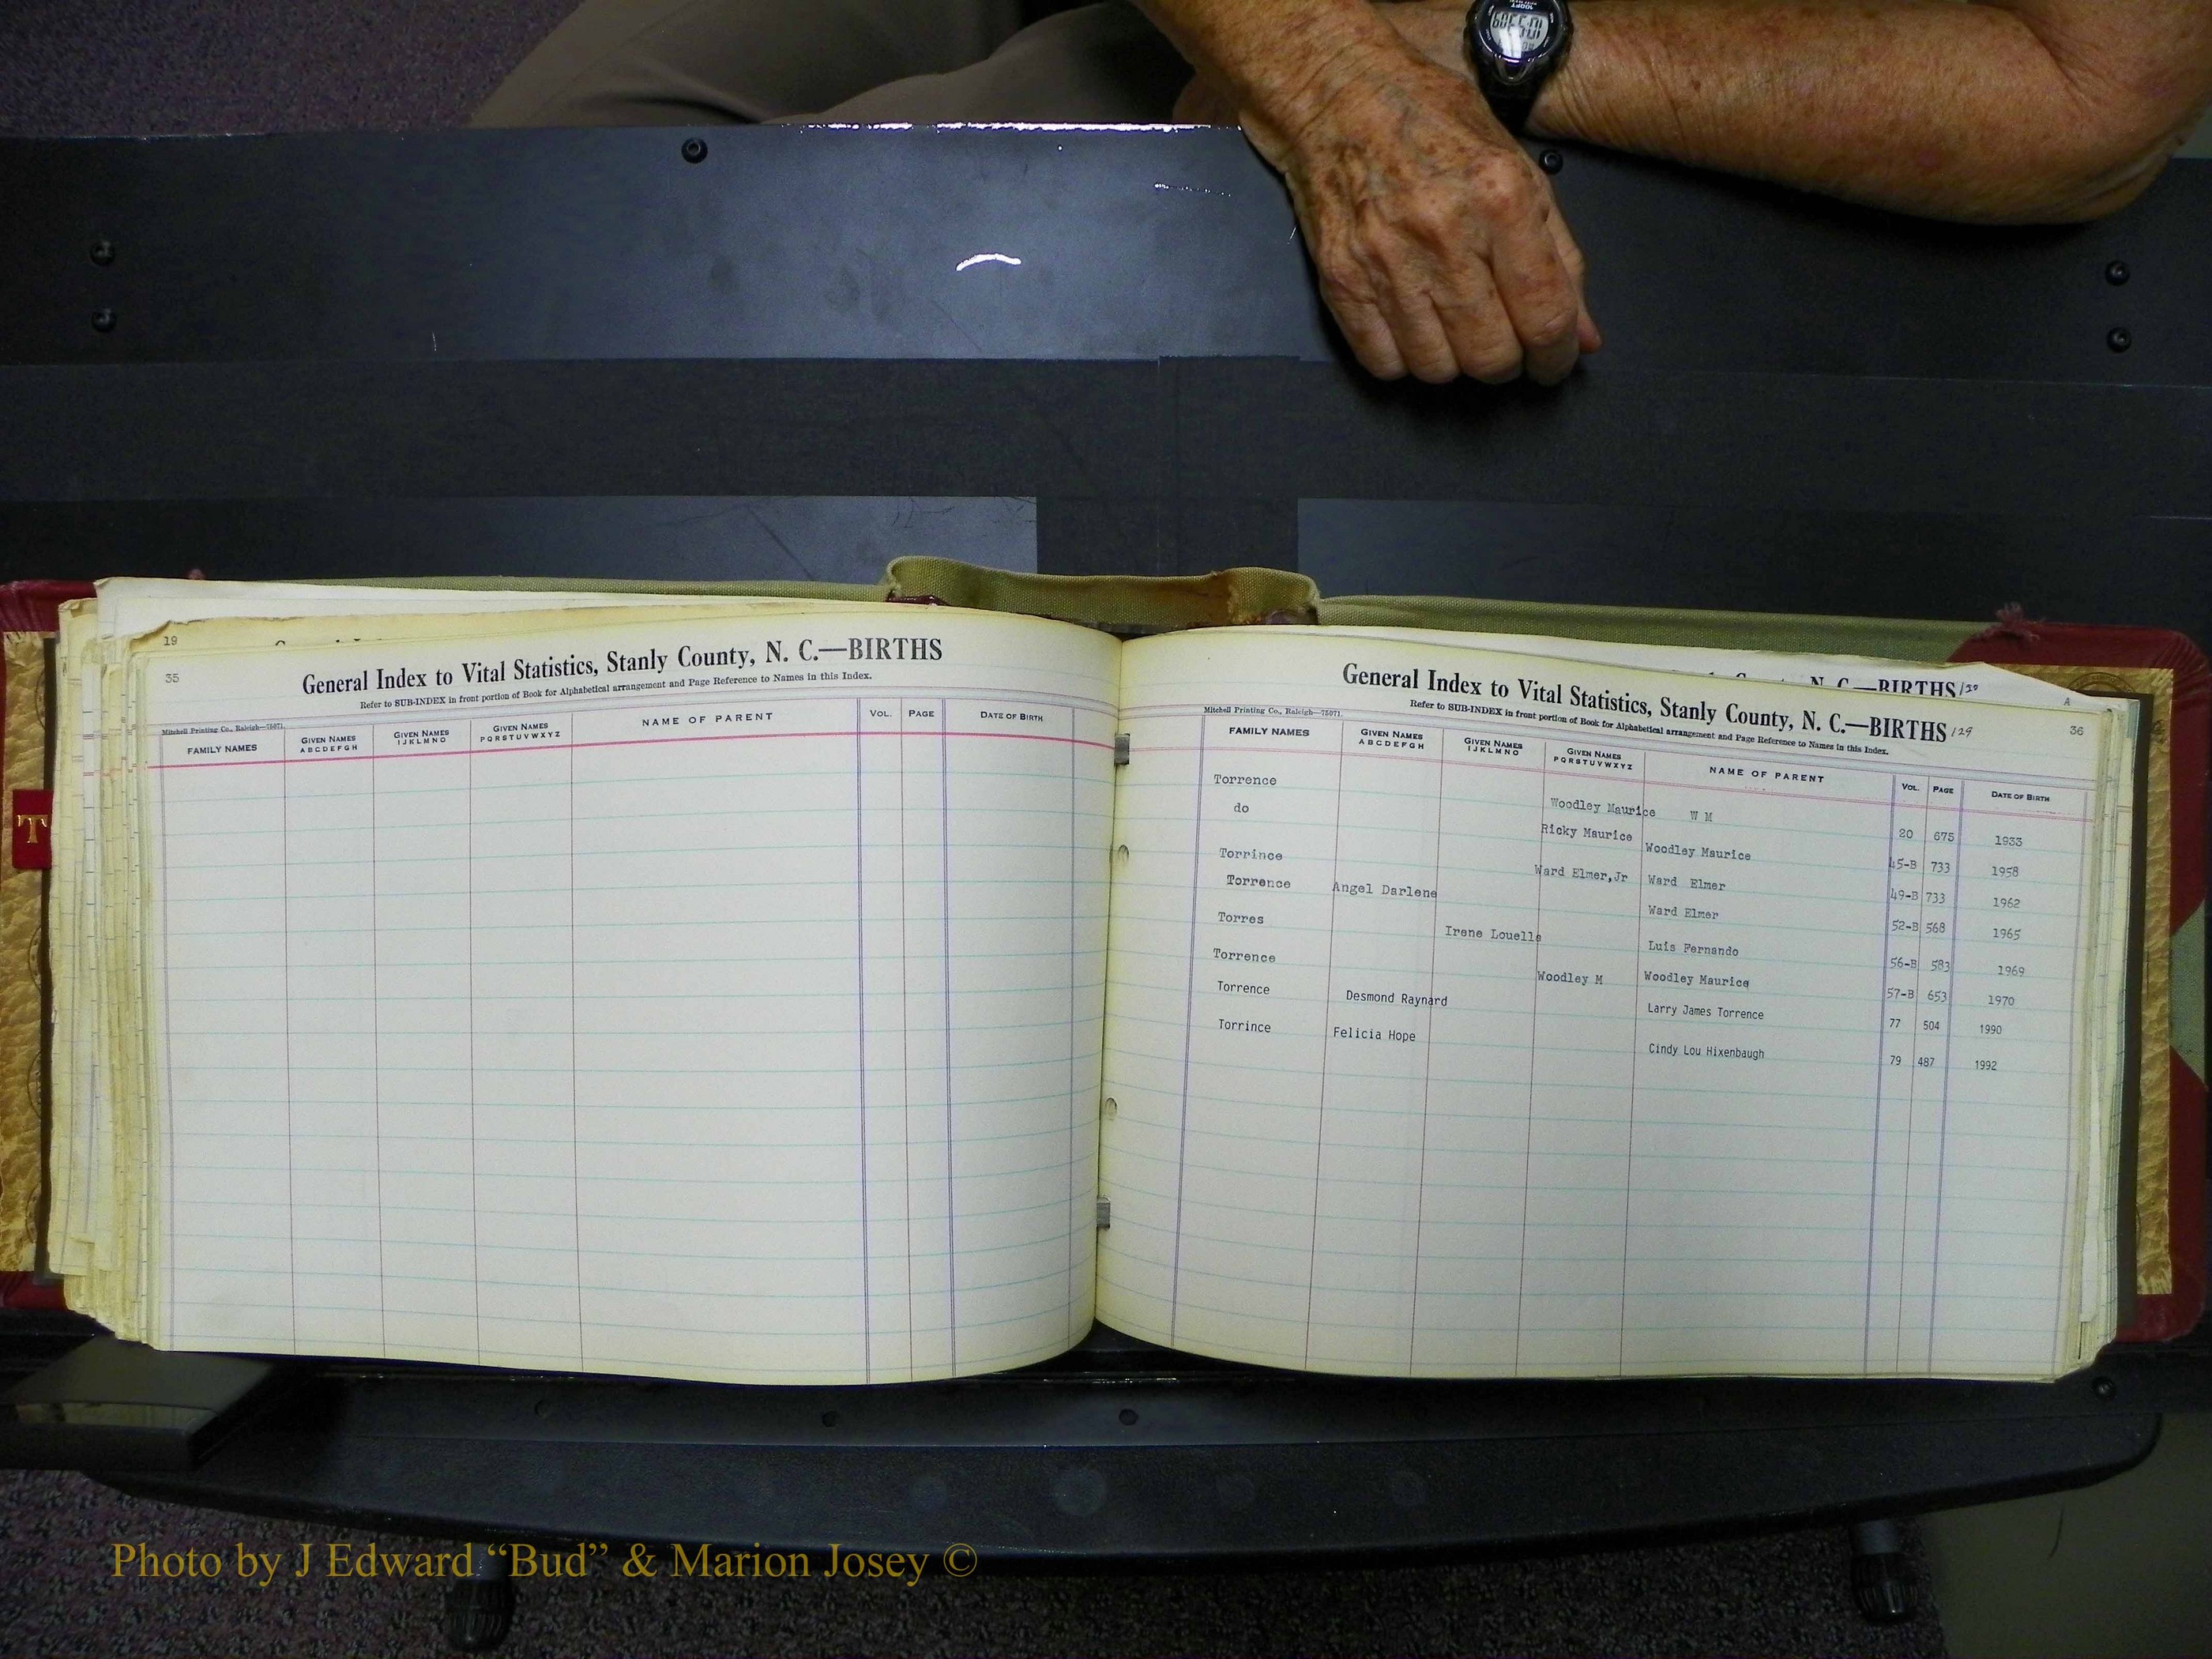 19
35
General Index to Vital Statistics, Stanly County, N. C.—BIRTHS
Refer to SUB-INDEX in front portion of Book for Alphabetical arrangement and Page Reference to Names in this Index.
Mitchell Printing Co., Raleigh—75071.
FAMILY NAMES GIVEN NAMES ABCDEFGH GIVEN NAMES IJKLMNO GIVEN NAMES PQRSTUVWXYZ NAME OF PARENT VOL. PAGE DATE OF BIRTH
T
N. C.—BIRTHS
A
36
General Index to Vital Statistics, Stanly County, N. C.—BIRTHS 129
Refer to SUB-INDEX in front portion of Book for Alphabetical arrangement and Page Reference to Names in this Index.
Mitchell Printing Co., Raleigh—75071.
FAMILY NAMES GIVEN NAMES ABCDEFGH GIVEN NAMES IJKLMNO GIVEN NAMES PQRSTUVWXYZ NAME OF PARENT VOL. PAGE DATE OF BIRTH
Torrence Woodley Maurice W M 20 675 1933
do Ricky Maurice Woodley Maurice 45-B 733 1958
Torrince Ward Elmer,Jr Ward Elmer 49-B 733 1962
Torrence Angel Darlene Ward Elmer 52-B 568 1965
Torres Irene Louella Luis Fernando 56-B 583 1969
Torrence Woodley M Woodley Maurice 57-B 653 1970
Torrence Desmond Raynard Larry James Torrence 77 504 1990
Torrince Felicia Hope Cindy Lou Hixenbaugh 79 487 1992
Photo by J Edward “Bud” & Marion Josey ©